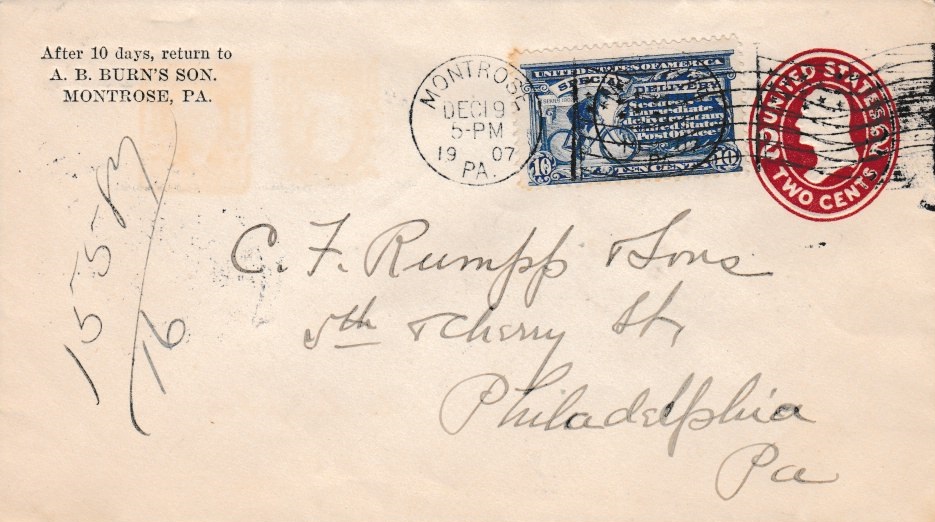 After 10 days, return to
A. B. BURN'S SON.
MONTROSE, PA.
MONTROSE
DEC 19
5-PM
19 07
PA.
UNITED STATES OF AMERICA
SPECIAL
DELIVERY
10 TEN CENTS 10
UNITED STATES
TWO CENTS
2 2
C. F. Rumpp & Sons
5th & Cherry St,
Philadelphia
Pa
16